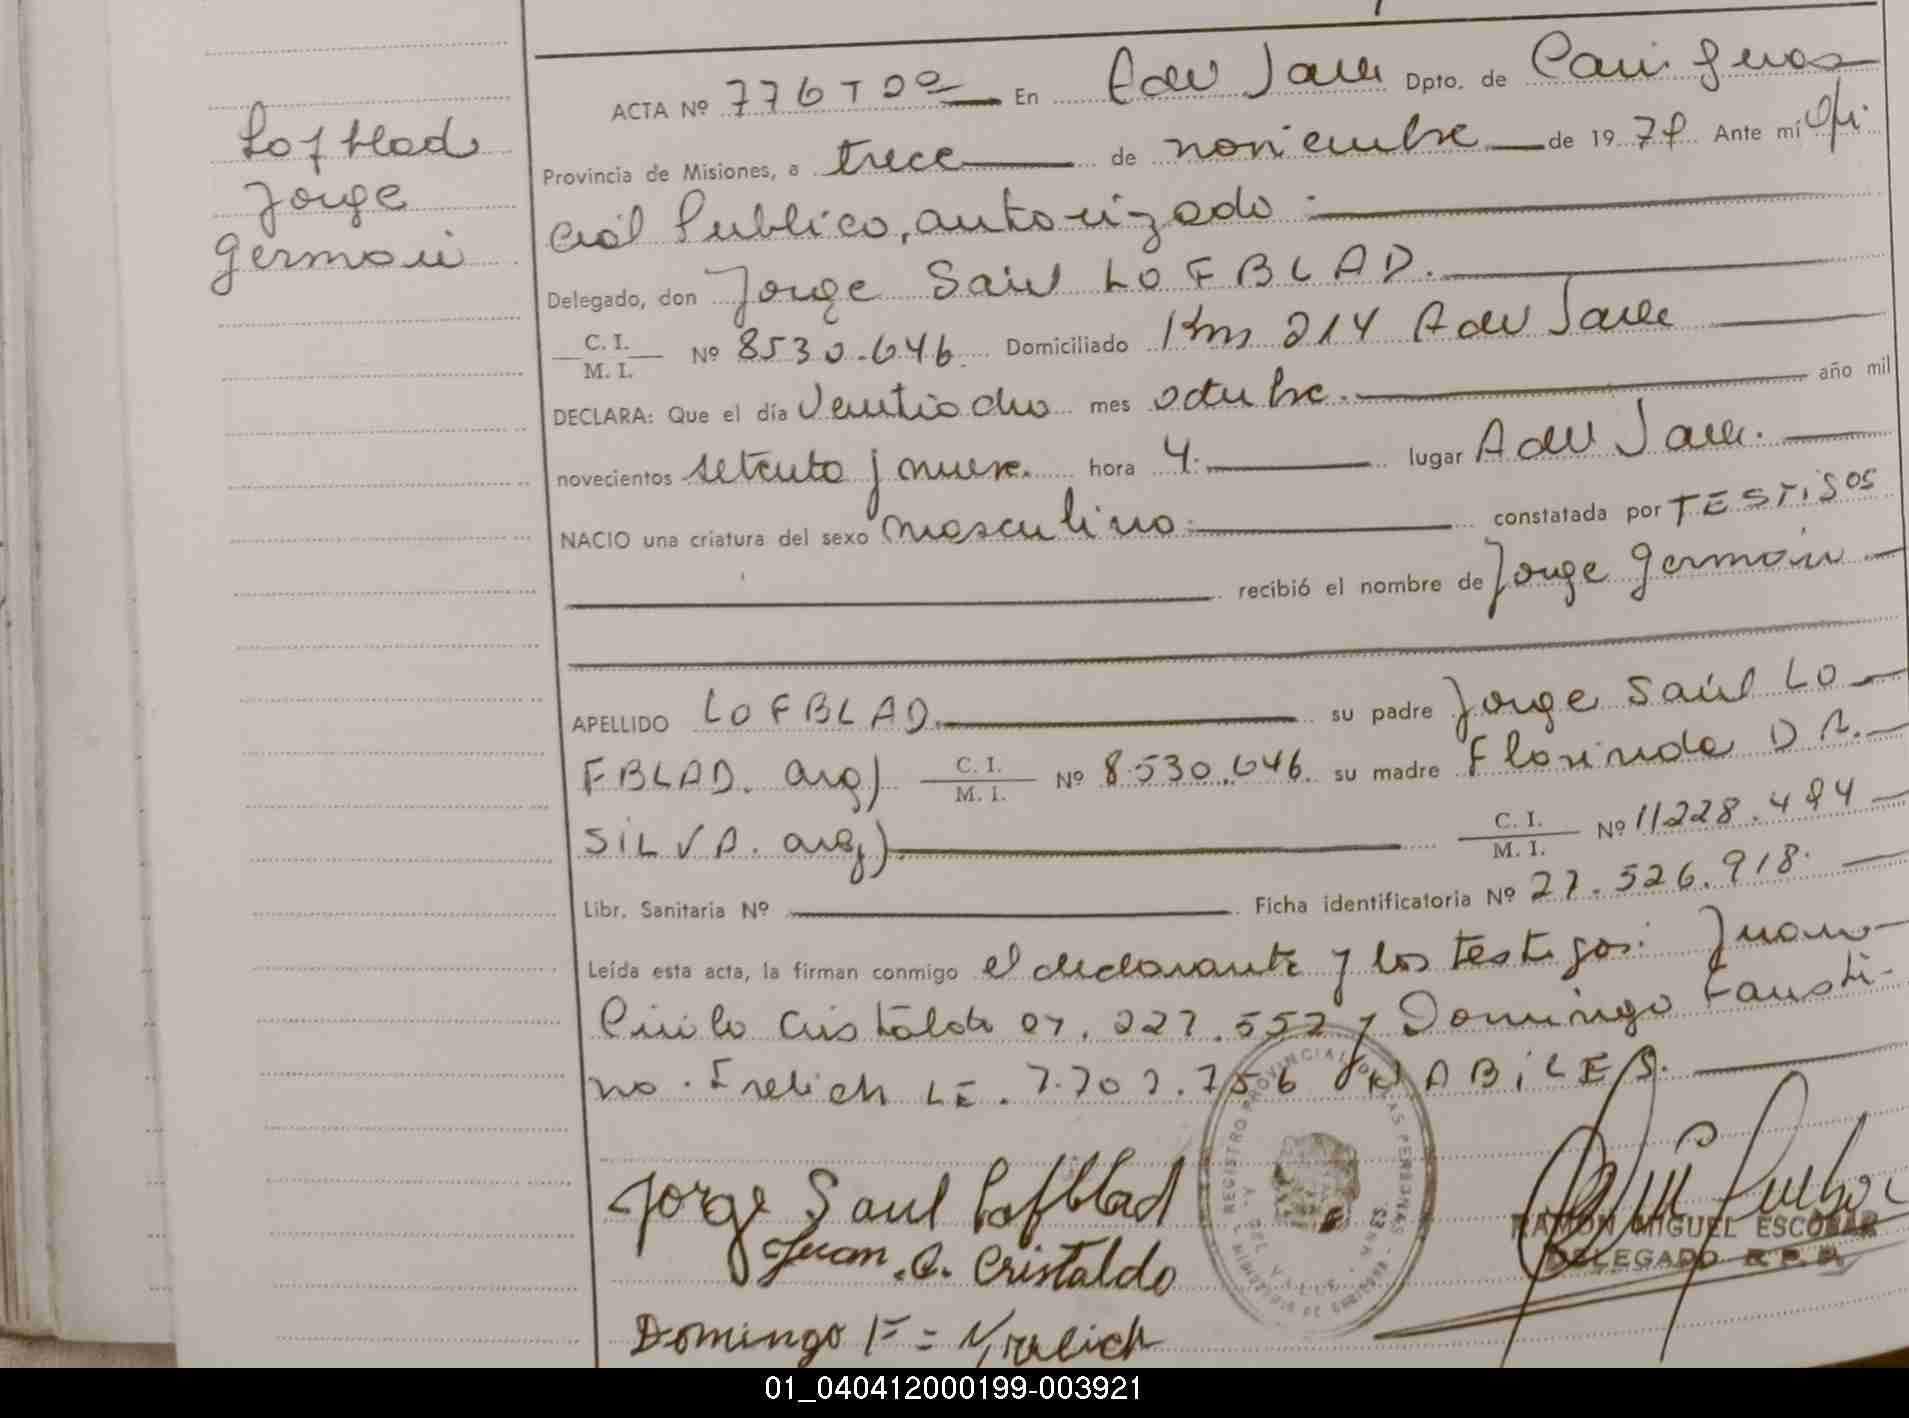 Lofblad
Jorge
Germán
ACTA Nº 776 Tº 2º En A del Valle Dpto. de Cainguas
Provincia de Misiones, a trece de noviembre de 1979 Ante mí Ofi
cial Publico, autorizado
Delegado, don Jorge Saúl LOFBLAD.
C. I. / M. I. Nº 8530.646. Domiciliado Km 214 A del Valle
DECLARA: Que el día ventiocho mes octubre. año mil
novecientos setenta y nueve. hora 4. lugar A del Valle.
NACIO una criatura del sexo masculino. constatada por TESTiGOS
recibió el nombre de Jorge Germán
APELLIDO LOFBLAD. su padre Jorge Saúl LO
FBLAD. arg) C. I. / M. I. Nº 8.530.646. su madre Florinda DA.
SiLVA. arg) C. I. / M. I. Nº 11228.494
Libr. Sanitaria Nº Ficha identificatoria Nº 27.526.918.
Leída esta acta, la firman conmigo el declarante y los testigos: Juan
Cirilo Cristaldo 07.227.552 y Domingo Fausti-
no. LE. 7.707.756 HABiLES.
Jorge Saul Lofblad
Juan.C. Cristaldo
Domingo F=
REGISTRO PROVINCIAL DE LAS PERSONAS
A. DEL VALLE - MNES.
MINISTERIO DE GOBIERNO
RAMON MIGUEL ESCOBAR
DELEGADO R.P.P.
01_040412000199-003921